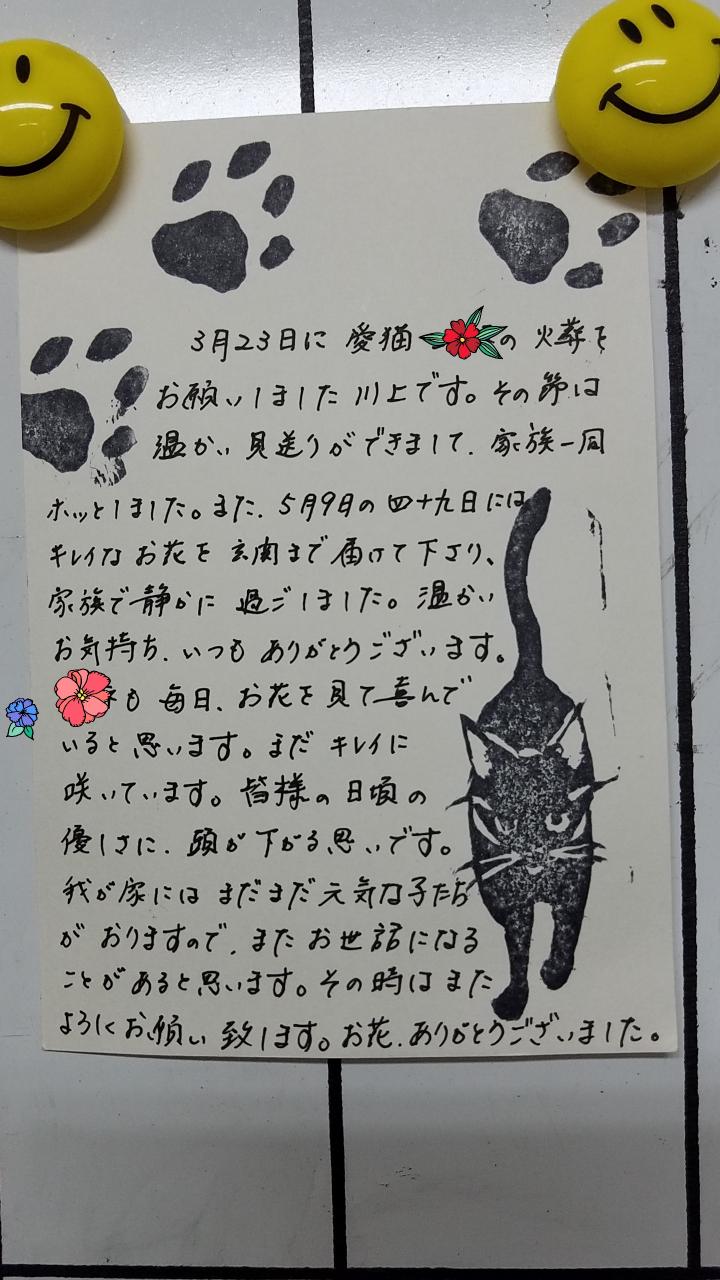 3月23日に 愛猫 の 火葬を
お願いしました 川上です。その節は
温かい 見送りができまして、家族一同
ホッとしました。また、5月9日の 四十九日には
キレイな お花を 玄関まで 届けて下さり、
家族で静かに 過ごしました。温かい
お気持ち、いつも ありがとうございます。
も 毎日、お花を 見て喜んで
いると 思います。まだ キレイに
咲いています。皆様の 日頃の
優しさに、頭が 下がる思いです。
我が家には まだまだ 元気な子たち
が おりますので、また お世話になる
ことが あると思います。その時は また
よろしくお願い 致します。お花、ありがとうございました。